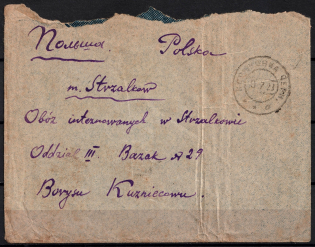 Польша Polska
m. Strzałków
Obóz internowanych w Strzałkowie
Oddział III. Barak A 29
Borysu Kuzniecowu.